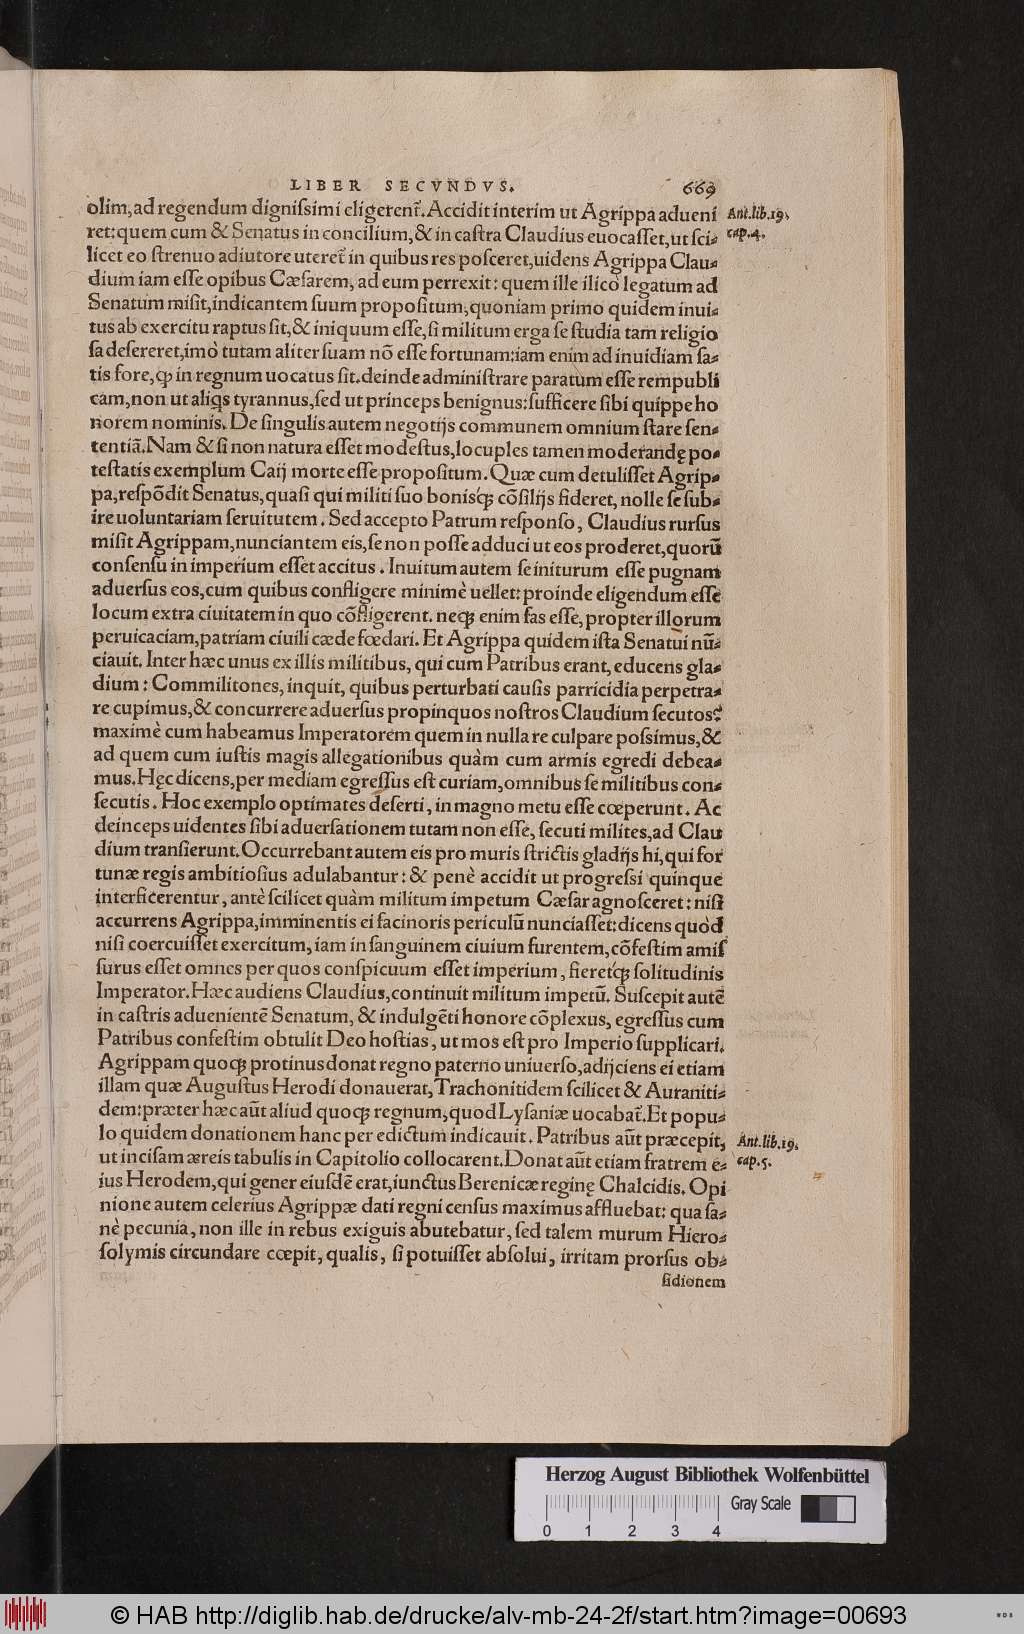 LIBER SECVNDVS. 669
olim, ad regendum digniſsimi eligerent̃. Accidit interim ut Agrippa adueni Ant. lib. 19.
ret: quem cum & Senatus in concilium, & in caſtra Claudius euocaſſet, ut ſci⸗ cap. 4.
licet eo ſtrenuo adiutore uteret̃ in quibus res poſceret, uidens Agrippa Clau⸗
dium iam eſſe opibus Cæſarem, ad eum perrexit: quem ille ilicò legatum ad
Senatum miſit, indicantem ſuum propoſitum, quoniam primo quidem inui⸗
tus ab exercitu raptus ſit, & iniquum eſſe, ſi militum erga ſe ſtudia tam religio
ſa deſereret, imò tutam aliter ſuam nõ eſſe fortunam: iam enim ad inuidiam ſa⸗
tis fore, ꝙ in regnum uocatus ſit. deinde adminiſtrare paratum eſſe rempubli
cam, non ut aliꝗs tyrannus, ſed ut princeps benignus: ſufficere ſibi quippe ho
norem nominis. De ſingulis autem negotijs communem omnium ſtare ſen⸗
tentiã. Nam & ſi non natura eſſet modeſtus, locuples tamen moderandę po⸗
teſtatis exemplum Caij morte eſſe propoſitum. Quæ cum detuliſſet Agrip⸗
pa, reſpõdit Senatus, quaſi qui militi ſuo bonisq́; cõſilijs fideret, nolle ſe ſub⸗
ire uoluntariam ſeruitutem. Sed accepto Patrum reſponſo, Claudius rurſus
miſit Agrippam, nunciantem eis, ſe non poſſe adduci ut eos proderet, quorũ
conſenſu in imperium eſſet accitus. Inuitum autem ſe initurum eſſe pugnam
aduerſus eos, cum quibus confligere minimè uellet: proinde eligendum eſſe
locum extra ciuitatem in quo cõfligerent. neq; enim fas eſſe, propter illorum
peruicaciam, patriam ciuili cæde fœdari. Et Agrippa quidem iſta Senatui nũ⸗
ciauit. Inter hæc unus ex illis militibus, qui cum Patribus erant, educens gla⸗
dium: Commilitones, inquit, quibus perturbati cauſis parricidia perpetra⸗
re cupimus, & concurrere aduerſus propinquos noſtros Claudium ſecutos?
maximè cum habeamus Imperatorem quem in nulla re culpare poſsimus, &
ad quem cum iuſtis magis allegationibus quàm cum armis egredi debea⸗
mus. Hęc dicens, per mediam egreſſus eſt curiam, omnibus ſe militibus con⸗
ſecutis. Hoc exemplo optimates deſerti, in magno metu eſſe cœperunt. Ac
deinceps uidentes ſibi aduerſationem tutam non eſſe, ſecuti milites, ad Clau
dium tranſierunt. Occurrebant autem eis pro muris ſtrictis gladijs hi, qui for
tunæ regis ambitioſius adulabantur: & penè accidit ut progreſsi quinque
interficerentur, antè ſcilicet quàm militum impetum Cæſar agnoſceret: niſi
accurrens Agrippa, imminentis ei facinoris periculũ nunciaſſet: dicens quòd
niſi coercuiſſet exercitum, iam in ſanguinem ciuium furentem, cõfeſtim amiſ
ſurus eſſet omnes per quos conſpicuum eſſet imperium, fieretq́; ſolitudinis
Imperator. Hæc audiens Claudius, continuit militum impetũ. Suſcepit autẽ
in caſtris aduenientẽ Senatum, & indulgẽti honore cõplexus, egreſſus cum
Patribus confeſtim obtulit Deo hoſtias, ut mos eſt pro Imperio ſupplicari.
Agrippam quoq; protinus donat regno paterno uniuerſo, adijciens ei etiam
illam quæ Auguſtus Herodi donauerat, Trachonitidem ſcilicet & Auraniti⸗
dem: præter hæc aũt aliud quoq; regnum, quod Lyſaniæ uocabat̃. Et popu⸗
lo quidem donationem hanc per edictum indicauit. Patribus aũt præcepit, Ant. lib. 19.
ut inciſam æreis tabulis in Capitolio collocarent. Donat aũt etiam fratrem e⸗ cap. 5.
ius Herodem, qui gener eiuſdẽ erat, iunctus Berenicæ reginę Chalcidis. Opi
nione autem celerius Agrippæ dati regni cenſus maximus affluebat: qua ſa⸗
nè pecunia, non ille in rebus exiguis abutebatur, ſed talem murum Hiero⸗
ſolymis circundare cœpit, qualis, ſi potuiſſet abſolui, irritam prorſus ob⸗
ſidionem
Herzog August Bibliothek Wolfenbüttel
Gray Scale
0 1 2 3 4
© HAB http://diglib.hab.de/drucke/alv-mb-24-2f/start.htm?image=00693